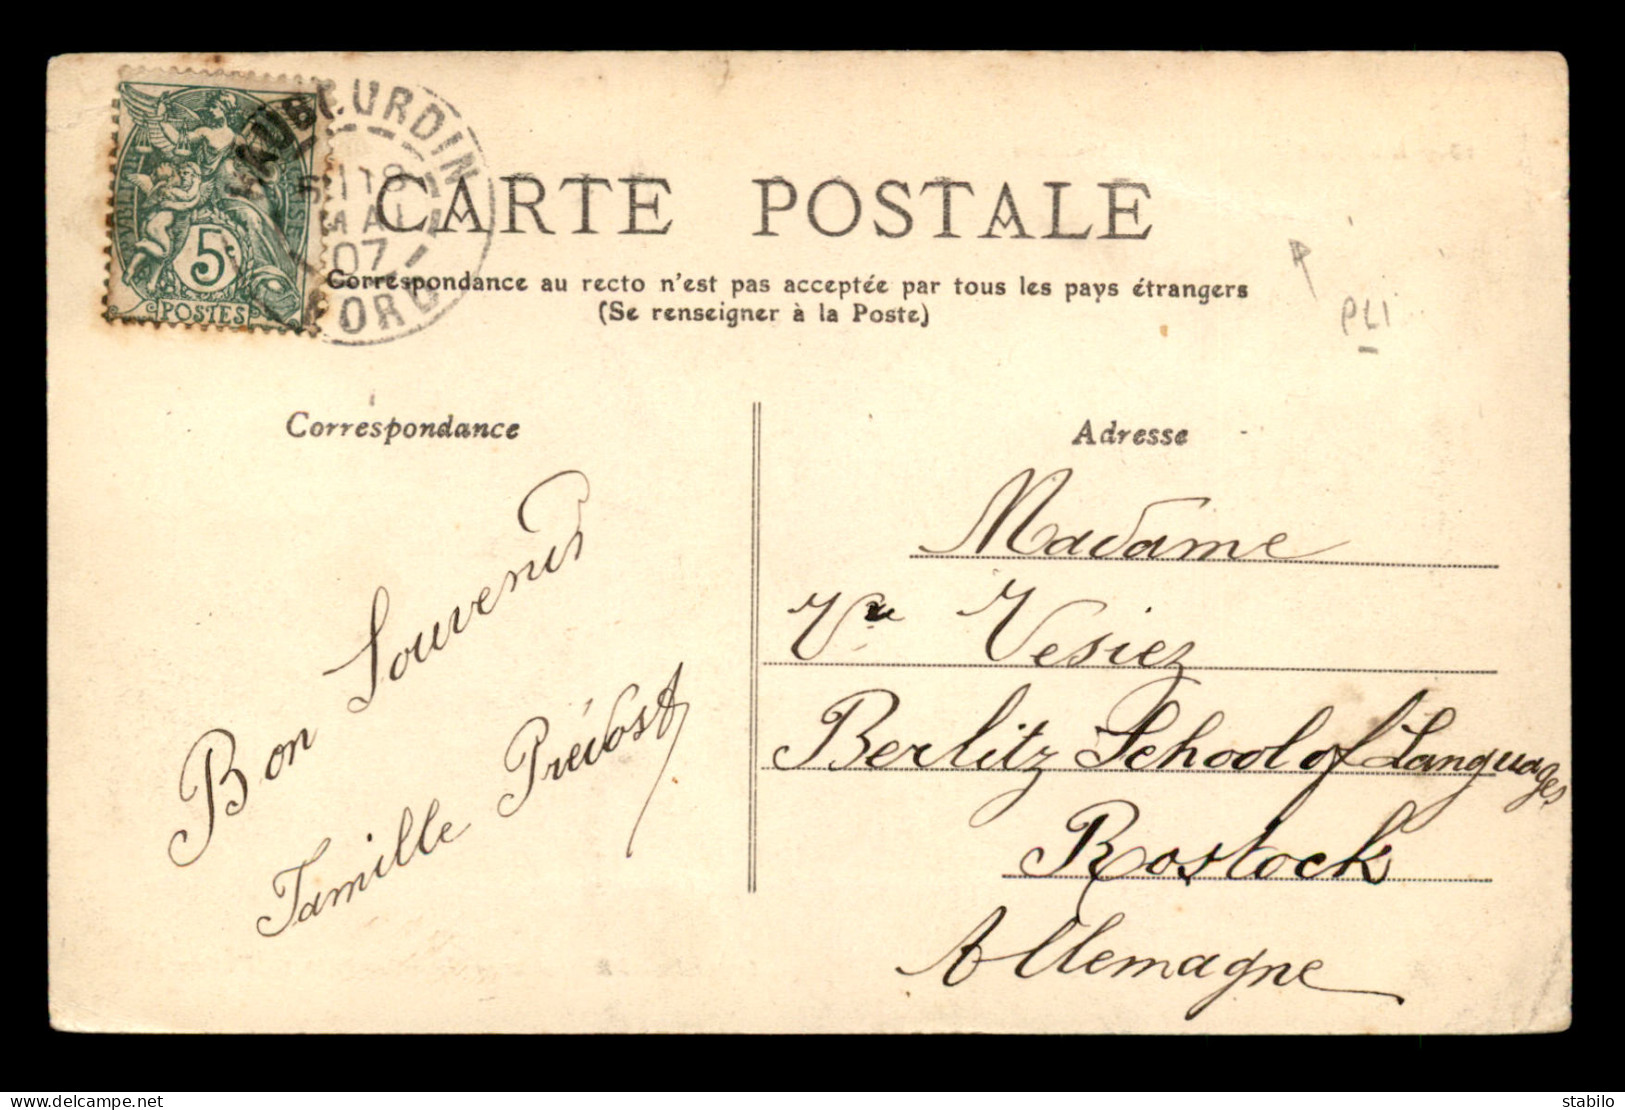 HAUBOURDIN
5E 18
MAI
07
NORD
5c
POSTES
CARTE POSTALE
Correspondance au recto n'est pas acceptée par tous les pays étrangers
(Se renseigner à la Poste)
PLI
Correspondance
Bon Souvenir
Famille Prévost
Adresse
Madame
Vve Vesiez
Berlitz School of Languages
Rostock
Allemagne
delcampe.net
stabilo